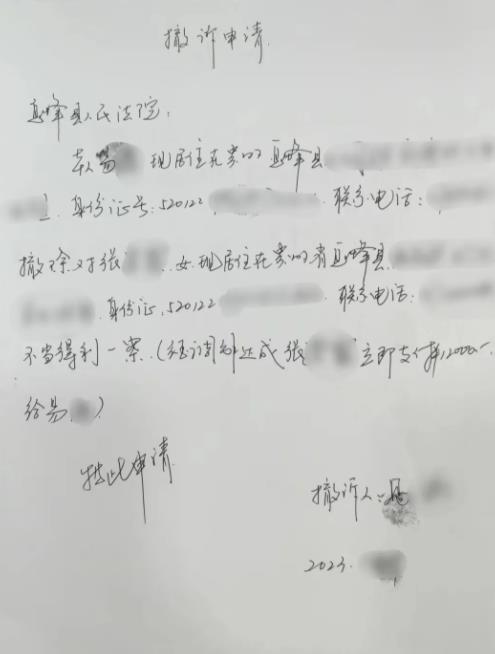 撤诉申请
息烽县人民法院:
本人易 现居住在贵州息烽县
身份证号:520122 联系电话:
撤除对张 女 现居住在贵州省息烽县
身份证:520122 联系电话:
不当得利一案(经调解达成张 立即支付
给易 )
特此申请
撤诉人:易
2023.